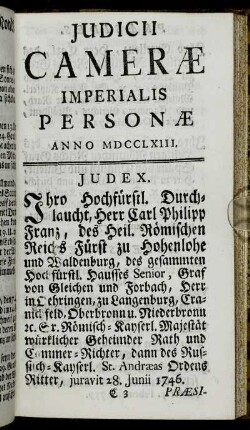 JUDICII
CAMERÆ
IMPERIALIS
PERSONÆ
ANNO MDCCLXIII.
JUDEX.
Ihro Hochfürstl. Durch-
laucht, Herr Carl Philipp
Franz, des Heil. Römischen
Reichs Fürst zu Hohenlohe
und Waldenburg, des gesammten
Hochfürstl. Hausses Senior, Graf
von Gleichen und Forbach, Herr
in Oehringen, zu Langenburg, Cra-
nichfeld, Oberbronn u. Niederbronn
ꝛc. S. r. Römisch-Kayserl. Majestät
würklicher Geheimder Rath und
Cammer-Richter, dann des Rus-
sisch-Kayserl. St. Andræas Ordens
Ritter, juravit 28. Junii 1746.
C 3 PRÆSI-